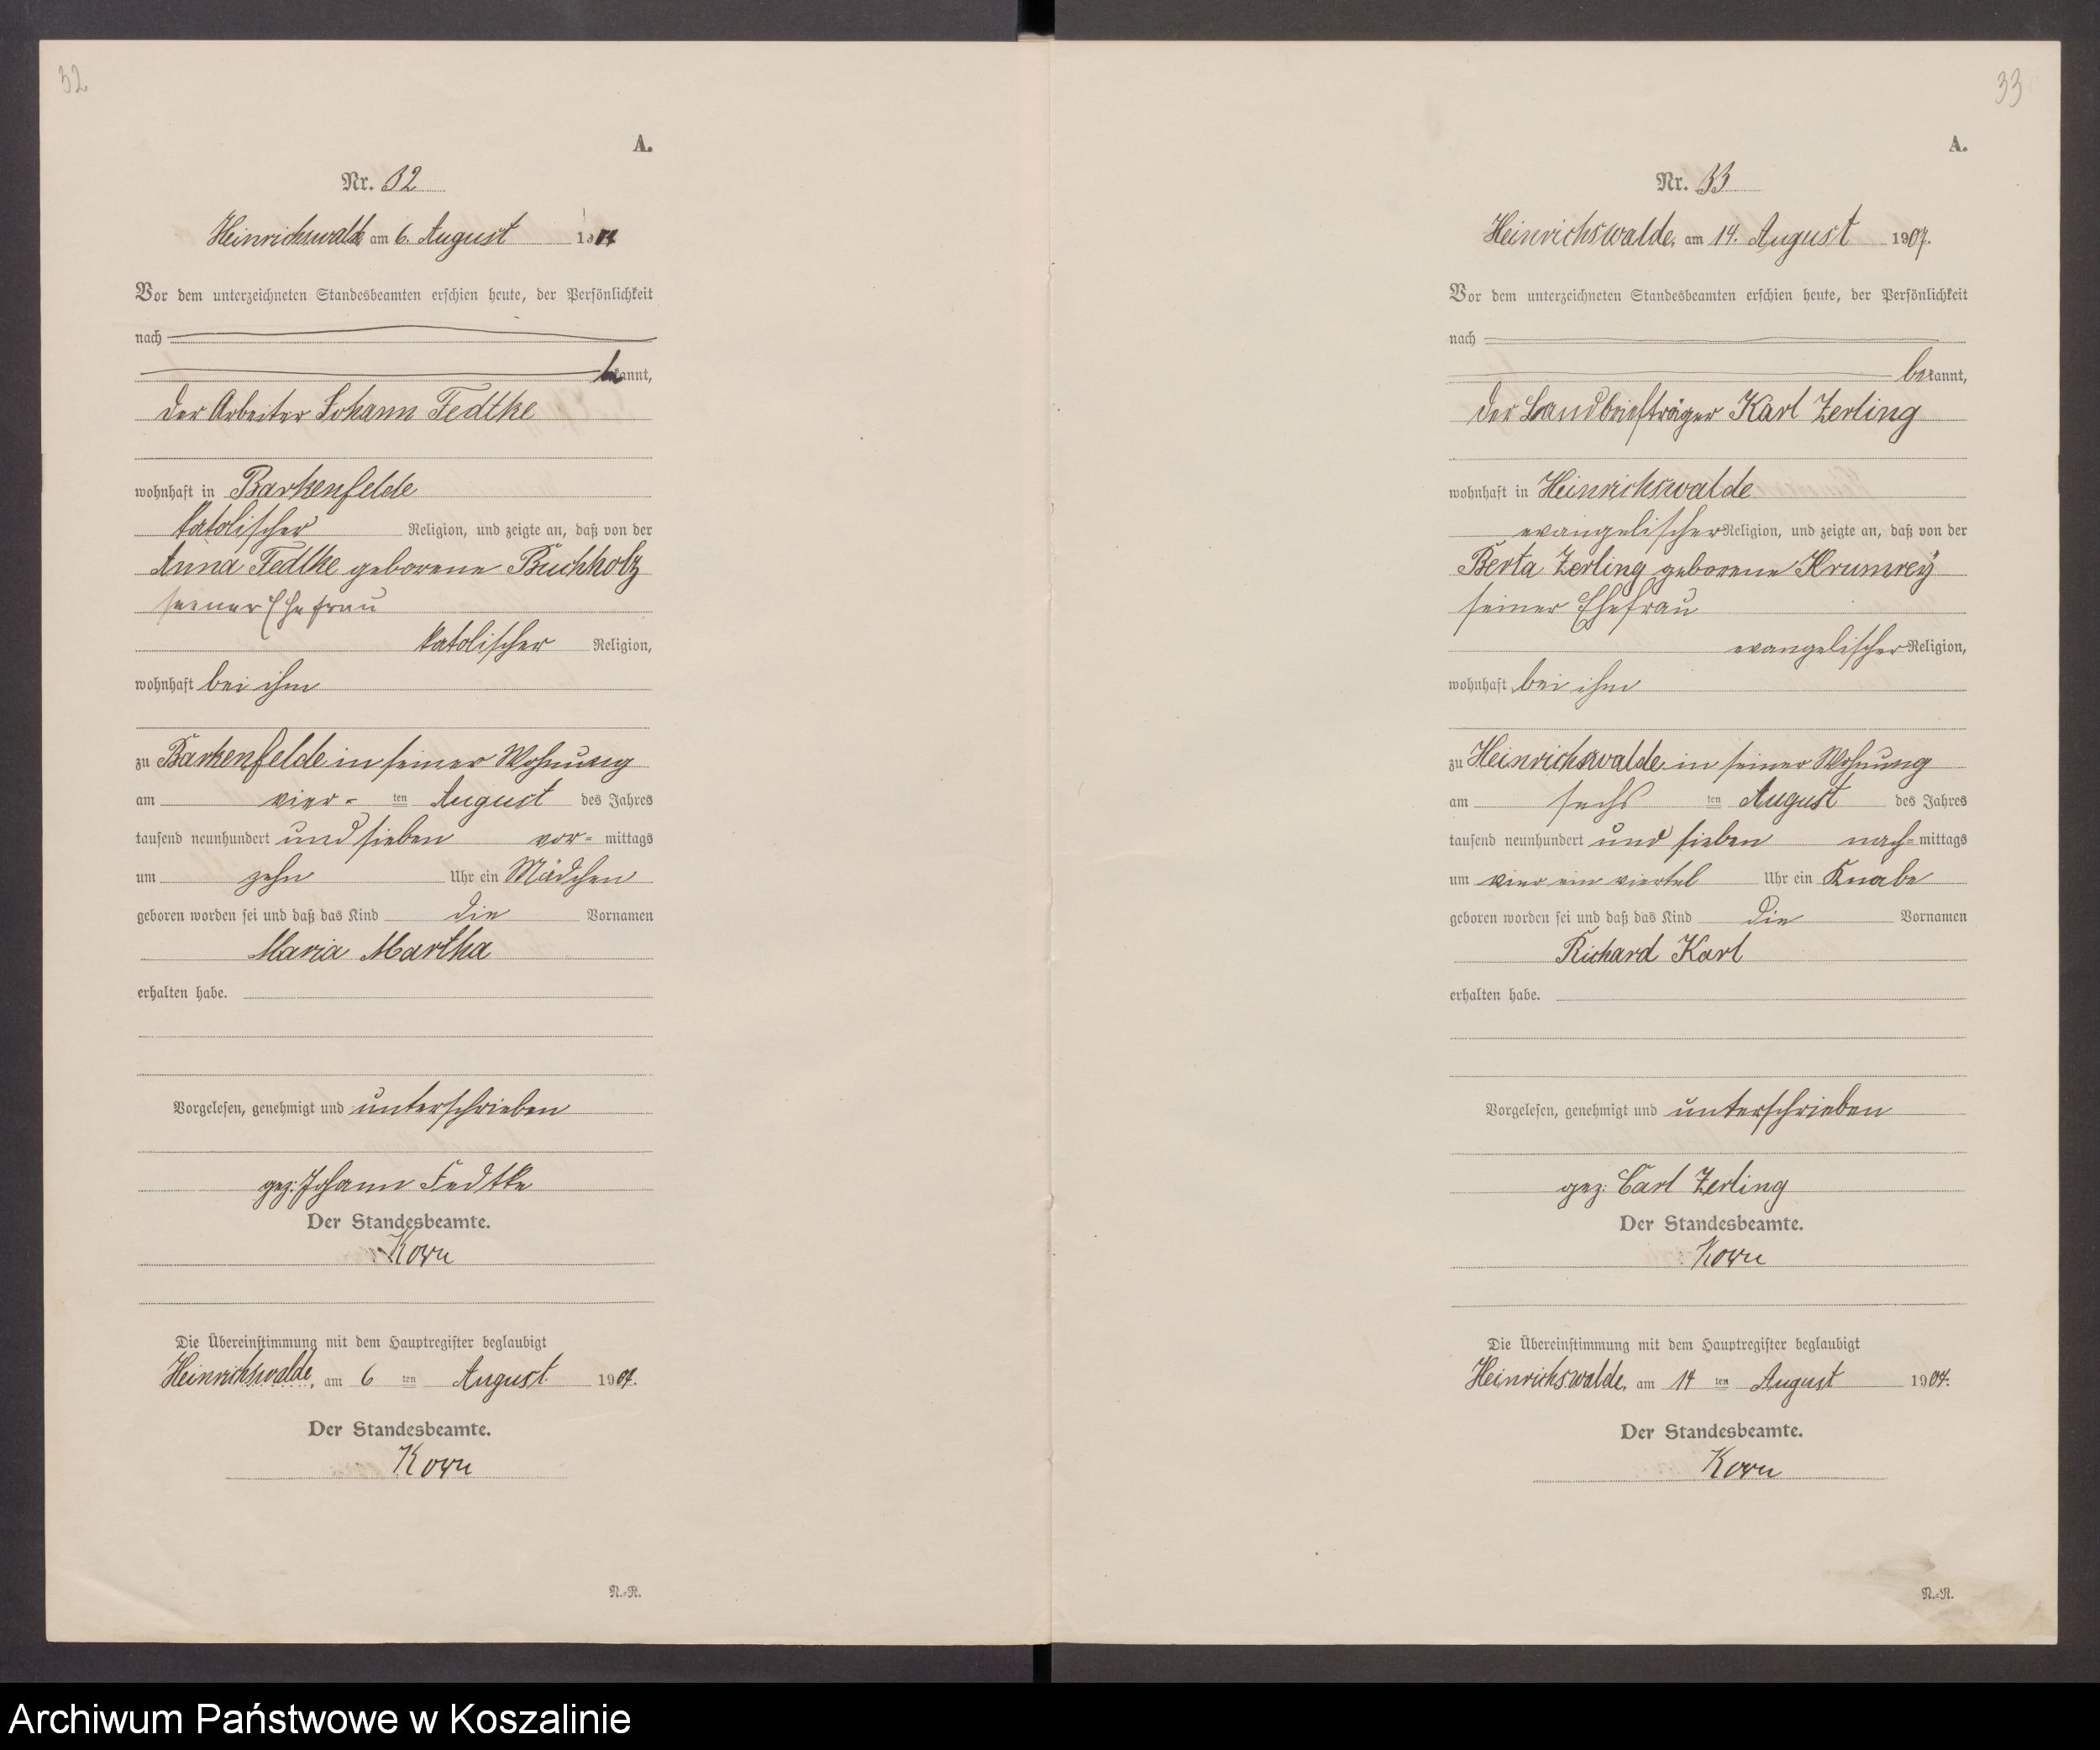 32
A.
Nr. 32
Heinrichswalde, am 6. August 1907
Vor dem unterzeichneten Standesbeamten erschien heute, der Persönlichkeit
nach
bekannt,
der Arbeiter Johann Fedtke
wohnhaft in Barkenfelde
katolischer Religion, und zeigte an, daß von der
Anna Fedtke geborene Buchholz
seiner Ehefrau
katolischer Religion,
wohnhaft bei ihm
zu Barkenfelde in seiner Wohnung
am vier- ten August des Jahres
tausend neunhundert und sieben vor- mittags
um zehn Uhr ein Mädchen
geboren worden sei und daß das Kind die Vornamen
Maria Martha
erhalten habe.
Vorgelesen, genehmigt und unterschrieben
gez: Johann Fedtke
Der Standesbeamte.
Korn
Die Übereinstimmung mit dem Hauptregister beglaubigt
Heinrichswalde, am 6 ten August 1907.
Der Standesbeamte.
Korn
N.-R.
33
A.
Nr. 33
Heinrichswalde, am 14. August 1907.
Vor dem unterzeichneten Standesbeamten erschien heute, der Persönlichkeit
nach
bekannt,
der Landbriefträger Karl Zerling
wohnhaft in Heinrichswalde
evangelischer Religion, und zeigte an, daß von der
Berta Zerling geborene Krumrey
seiner Ehefrau
evangelischer Religion,
wohnhaft bei ihm
zu Heinrichswalde in seiner Wohnung
am sechs ten August des Jahres
tausend neunhundert und sieben nach- mittags
um vier ein viertel Uhr ein Knabe
geboren worden sei und daß das Kind die Vornamen
Richard Karl
erhalten habe.
Vorgelesen, genehmigt und unterschrieben
gez: Carl Zerling
Der Standesbeamte.
Korn
Die Übereinstimmung mit dem Hauptregister beglaubigt
Heinrichswalde, am 14 ten August 1907.
Der Standesbeamte.
Korn
N.-R.
Archiwum Państwowe w Koszalinie